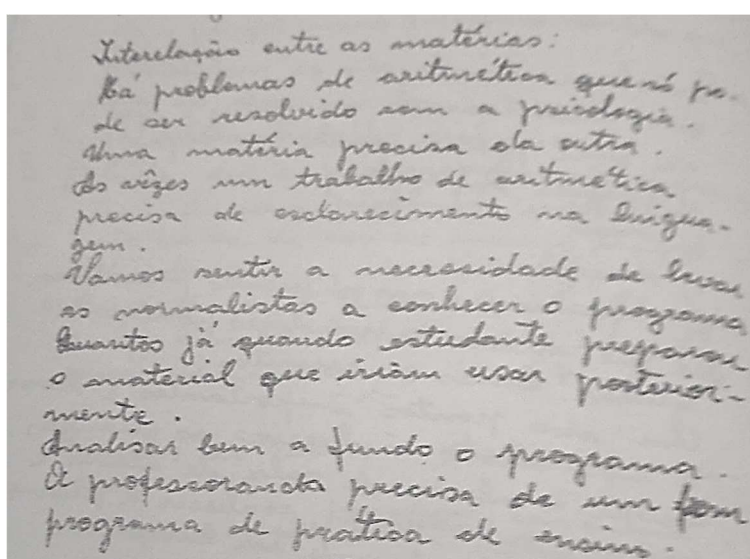 Interelação entre as matérias:
Há problemas de aritmética que só po-
de ser resolvido com a psicologia.
Uma matéria precisa da outra.
Às vêzes um trabalho de aritmética
precisa de esclarecimento na lingua-
gem.
Vamos sentir a necessidade de levar
as normalistas a conhecer o programa
Quantos já quando estudante preparou
o material que iriam usar posterior-
mente.
Analisar bem a fundo o programa.
A professoranda precisa de um bom
programa de prática de ensino.